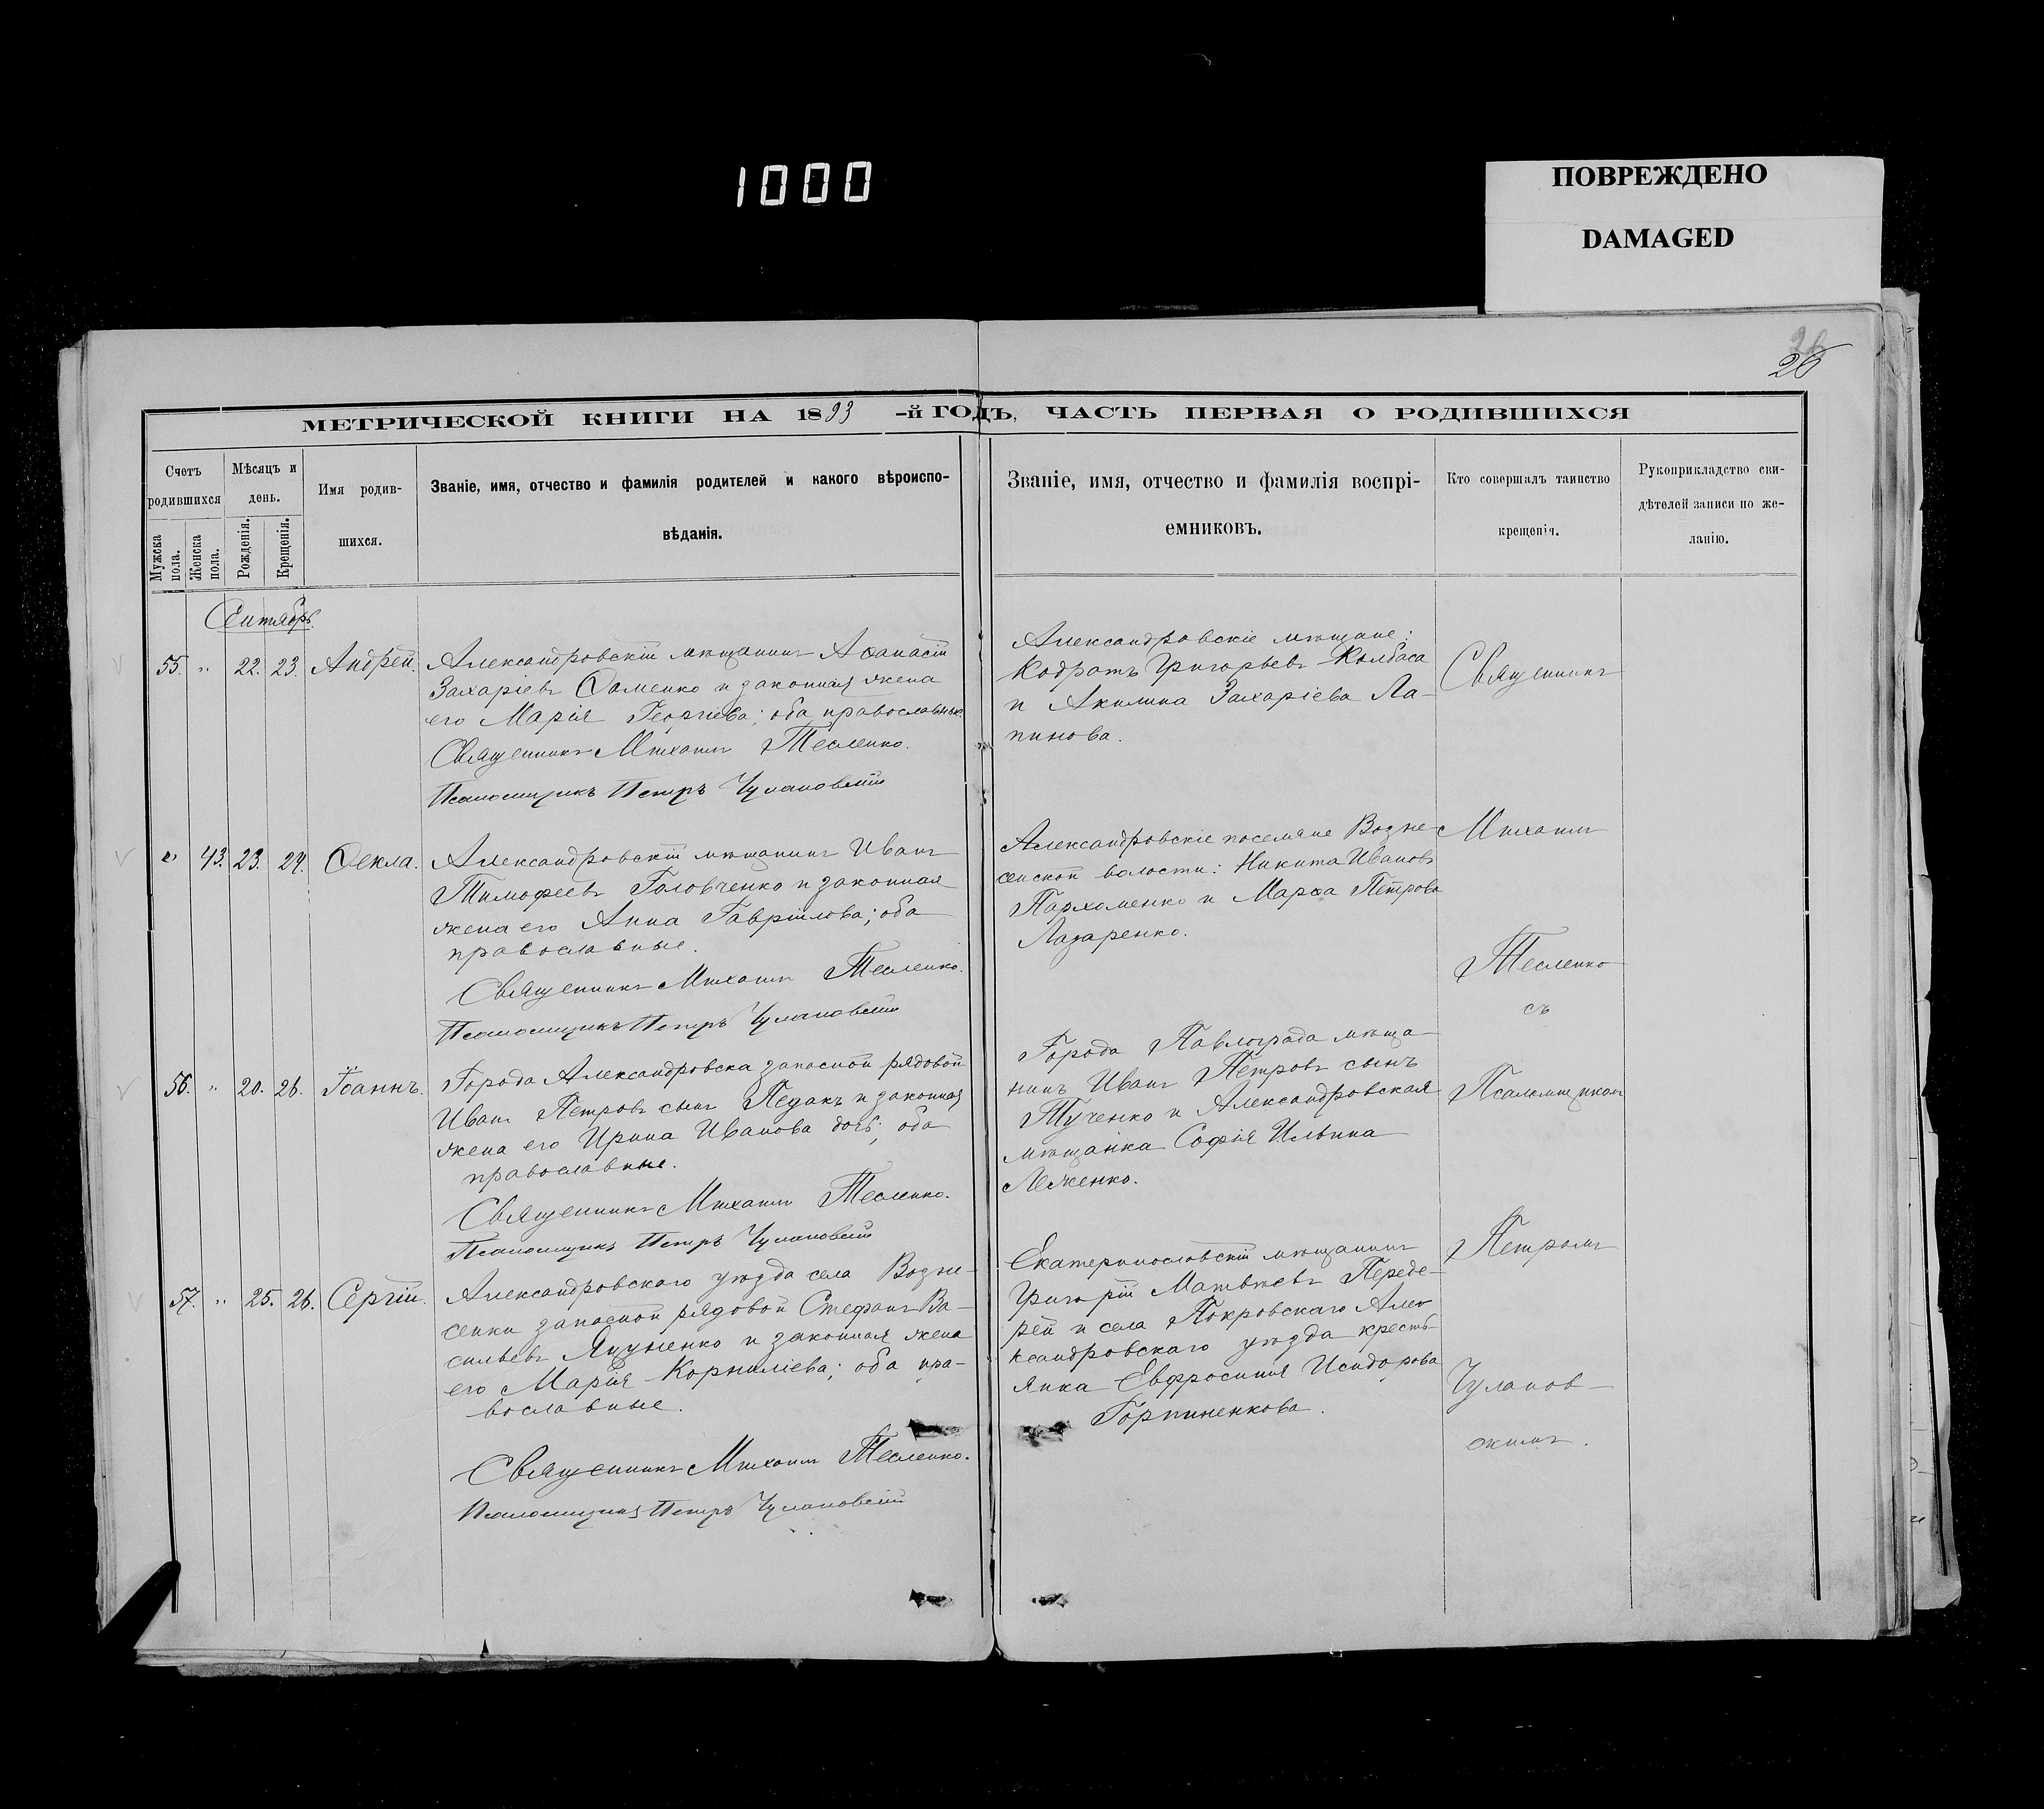 1000
ПОВРЕЖДЕНО
DAMAGED
26
26
МЕТРИЧЕСКОЙ КНИГИ НА 1893 -й ГОДЪ, ЧАСТЬ ПЕРВАЯ О РОДИВШИХСЯ
Счетъ
родившихся
Мужска
пола.
Женска
пола.
Мѣсяцъ и
день.
Рожденія.
Крещенія.
Имя родив-
шихся.
Званіе, имя, отчество и фамилія родителей и какого вѣроиспо-
вѣданія.
Званіе, имя, отчество и фамилія воспрі-
емниковъ.
Кто совершалъ таинство
крещенія.
Рукоприкладство сви-
дѣтелей записи по же-
ланію.
Сентябрь.
55. " 22. 23. Андрей.
Александровскій мѣщанинъ Аѳанасій
Захаріевъ Ѳоменко и законная жена
его Марія Георгіева; оба православные.
Священникъ Михаилъ Тесленко.
Псаломщикъ Петръ Чулановскій
Александровскіе мѣщане:
Кодратъ Григорьевъ Колбаса
и Акилина Захаріева Ла-
пинова.
Священникъ
" 43. 23. 24. Ѳекла.
Александровскій мѣщанинъ Иванъ
Тимофеевъ Головченко и законная
жена его Анна Гавріилова; оба
православные.
Священникъ Михаилъ Тесленко.
Псаломщикъ Петръ Чулановскій
Александровскіе поселяне Возне-
сенской волости: Никита Ивановъ
Пархоменко и Марѳа Петрова
Лазаренко.
Михаилъ
Тесленко
съ
56. " 20. 26. Іоаннъ.
Города Александровска запасной рядовой
Иванъ Петровъ сынъ Педакъ и законная
жена его Ирина Иванова дочь; оба
православные.
Священникъ Михаилъ Тесленко.
Псаломщикъ Петръ Чулановскій
Города Павлограда мѣща-
нинъ Иванъ Петровъ сынъ
Тученко и Александровская
мѣщанка Софія Ильина
Леженко.
Псаломщикомъ
Петромъ
57. " 25. 26. Сергій.
Александровскаго уѣзда села Возне-
сенки запасной рядовой Стефанъ Ва-
сильевъ Яцуненко и законная жена
его Марія Корниліева; оба пра-
вославные.
Священникъ Михаилъ Тесленко.
Псаломщикъ Петръ Чулановскій
Екатеринославскій мѣщанинъ
Григорій Матвѣевъ Переде-
рей и села Покровскаго Але-
ксандровскаго уѣзда кресть-
янка Евфросинія Исидорова
Горпиненкова.
Чуланов-
скимъ.